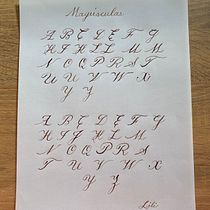 Mayúsculas
A B C D E F G
H I J K L M N
N O P Q R S T
U U V W X
Y Z
A B C D E F G
H I J K L M
N O P Q R S T
U V W X
Y Z
Lili